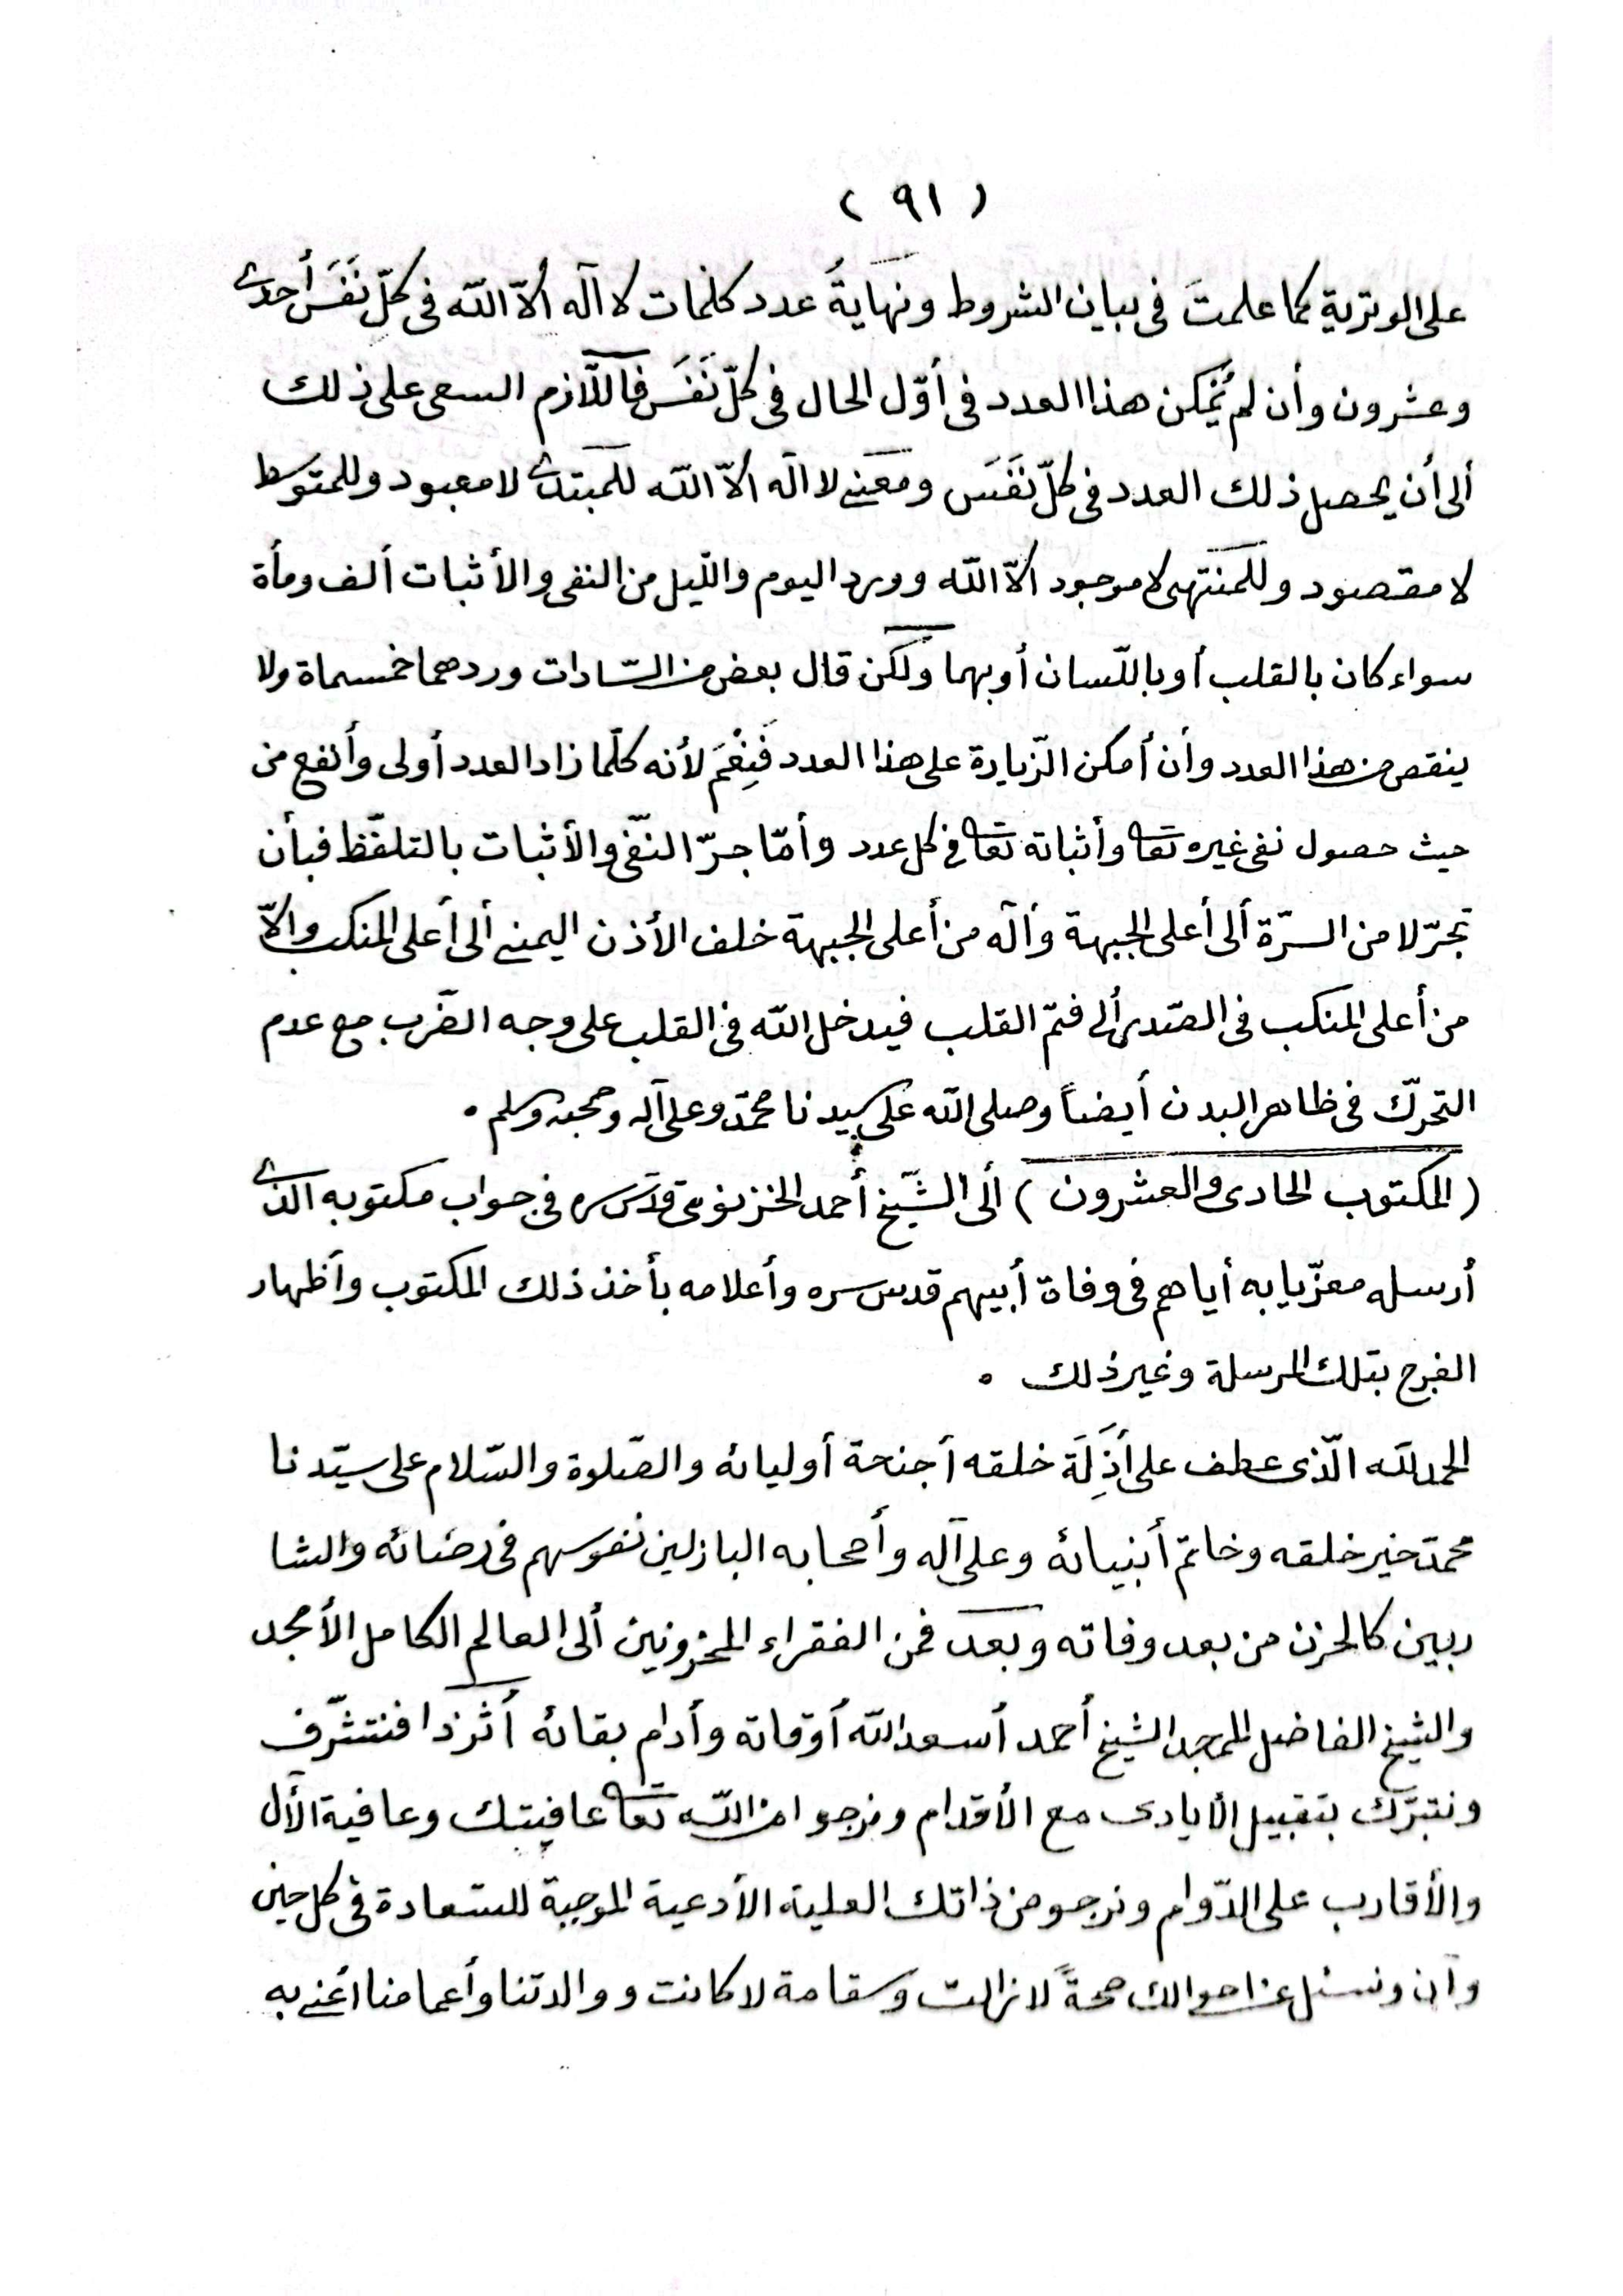 ( ٩١ )
على الوترية كما علمتَ فى بيان الشروط ونهايةُ عدد كلمات لا اله ألاّ اللّه فى كلّ نَفَس أحدى
وعشرون وأن لم يُمكن هذا العدد فى أوّل الحال فى كلّ نَفَس فاللّازم السعى على ذلك
ألى أن يحصل ذلك العدد فى كلّ نَفَس ومعنى لا اله ألاّ اللّه للمبتدى لا معبود وللمتوسط
لا مقصود وللمنتهى لا موجود ألاّ اللّه وورد اليوم واللّيل من النفى والأثبات ألف ومأة
سواء كان بالقلب أو باللّسان أو بهما ولكن قال بعض من السّادات وردهما خمسماة ولا
ينقص من هذا العدد وأن أمكن الزّيادة على هذا العدد فَنِعْمَ لأنه كلّما زاد العدد أولى وأنفع من
حيث حصول نفى غيره تعا وأثباته تعا فى كل عدد وأمّا جرّ النّفى والأثبات بالتلفّظ فبأن
تجرّ لا من السرّة ألى أعلى الجبهة وأله من أعلى الجبهة خلف الأذن اليمنى ألى أعلى المنكب وألاّ
من أعلى المنكب فى الصّدر ألى فمّ القلب فيدخل اللّه فى القلب على وجه الضّرب مع عدم
التحرّك فى ظاهر البدن أيضاً وصلى اللّه على سيدنا محمّد وعلى آله وصحبه وسلم .
( المكتوب الحادى والعشرون ) ألى الشّيخ أحمد الخزنوى قدّس سره فى جواب مكتوبه الذى
أرسله معزّيا به أياهم فى وفاة أبيهم قدس سره وأعلامه بأخذ ذلك المكتوب وأظهار
الفرح بتلك المرسلة وغير ذلك .
الحمد للّه الّذى عطف على أَذِلَة خلقه أجنحة أوليائه والصّلوة والسّلام على سيّدنا
محمّد خير خلقه وخاتم أنبيائه وعلى آله وأصحابه البازلين نفوسهم فى رضائه والشا
ربين كالحزن من بعد وفاته وبعد فمن الفقراء المحزونين ألى العالم الكامل الأمجد
والشيخ الفاضل الممجد الشيخ أحمد أسعد اللّه أوقاته وأدام بقائه أثرذا فنتشّرف
ونتبرّك بتقبيل الأيادى مع الأقدام ونرجو من اللّه تعا عافيتك وعافية الأل
والأقارب على الدّوام ونرجو من ذاتك العلية الأدعية الموجبة للسّعادة فى كل حين
وأن ونسئل عن احوالك صحةً لا زالت وسقامة لا كانت ووالدتنا وأعمامنا أعنى به